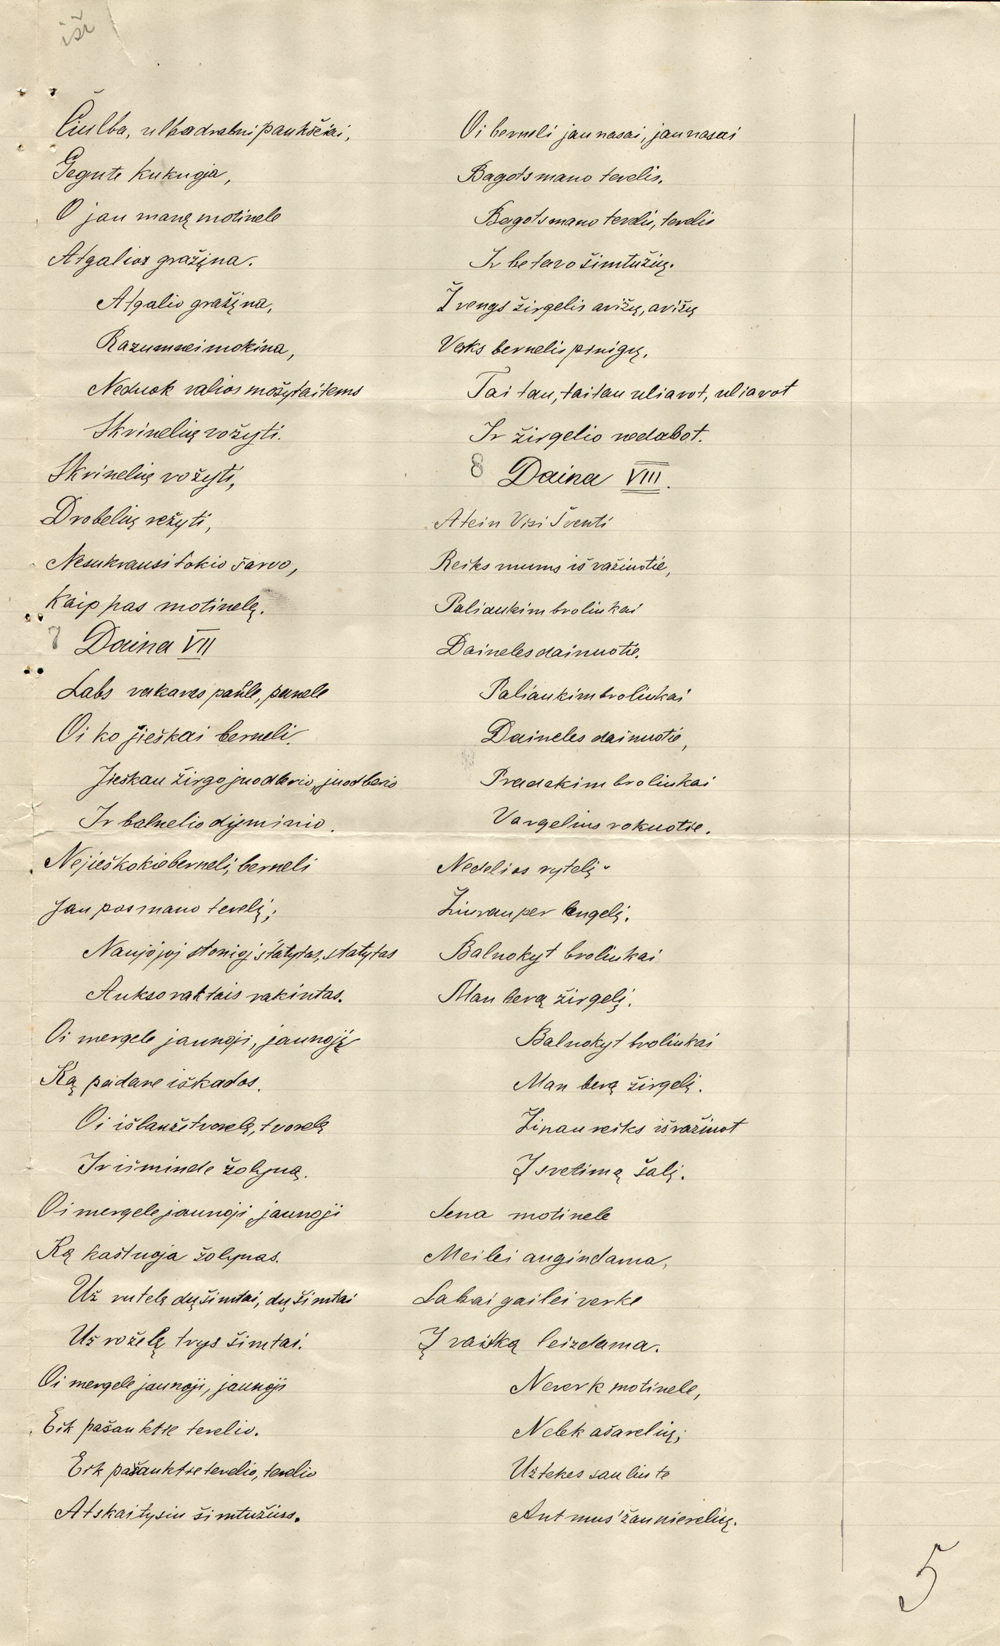 iši
Čiulba, ulba drabni paukščiai,
Gegute kukuoja,
O jau maną motinele
Atgalios gražįna.
Atgalio gražįna,
Razumnei mokina,
Neduok valios mošytaitems
Skrinelių vožyti.
Skrinelių vožyti,
Drobelių režyti,
Nesukrausi tokio šarvo,
Kaip pas motinelę.
7 Daina VII
Labs vakares panele, panele
Oi ko ješkai berneli.
Jieškau žirgo juodberio, juodberio
Ir balnelio dyminio.
Nejieškokie berneli, berneli
Jau pas mano tevelį;
Naujojoj stonioj statytas, statytas
Aukso raktais rakintas.
Oi mergele jaunoji, jaunoji
Ką padare iškados.
Oi išlaužė tvorelę, tvorelę
Ir išminde žolyną.
Oi mergele jaunoji, jaunoji
Ką kaštuoja žolynas.
Už rutelę du šimtai, du šimtai
Už rožėlę trys šimtai.
Oi mergele jaunoji, jaunoji
Eik pašauktie tevelio.
Eik pašauktie tevelio, tevelio
Atskaitysiu šimtužius.
Oi berneli jaunasai, jaunasai
Bagots mano tevelis.
Bagots mano tevelis, tevelis
Ir be tavo šimtužių.
Žvengs žirgelis avižų, avižų
Verks bernelis pinigų.
Tai tau, tai tau uliavot, uliavot
Ir žirgelio nedabot.
8 Daina VIII.
Atein Visi Šventi
Reiks mums išvažiuotie,
Paliaukim broliukai
Daineles dainuotie.
Paliaukim broliukai
Daineles dainuotie,
Pradekim broliukai
Vargelius rokuotie.
Nedelios rytelį
Žiurau per langelį.
Balnokyt broliukai
Man berą žirgelį.
Balnokyt broliukai
Man berą žirgelį.
Žinau reiks išvažiuot
Į svetimą šalį.
Sena motinele
Meilei augindama,
Labai gailei verke
Į vaiską leizdama.
Neverk motinele,
Nelek ašarelių;
Užtekes saulute
Ant mus' žaunierelių.
5